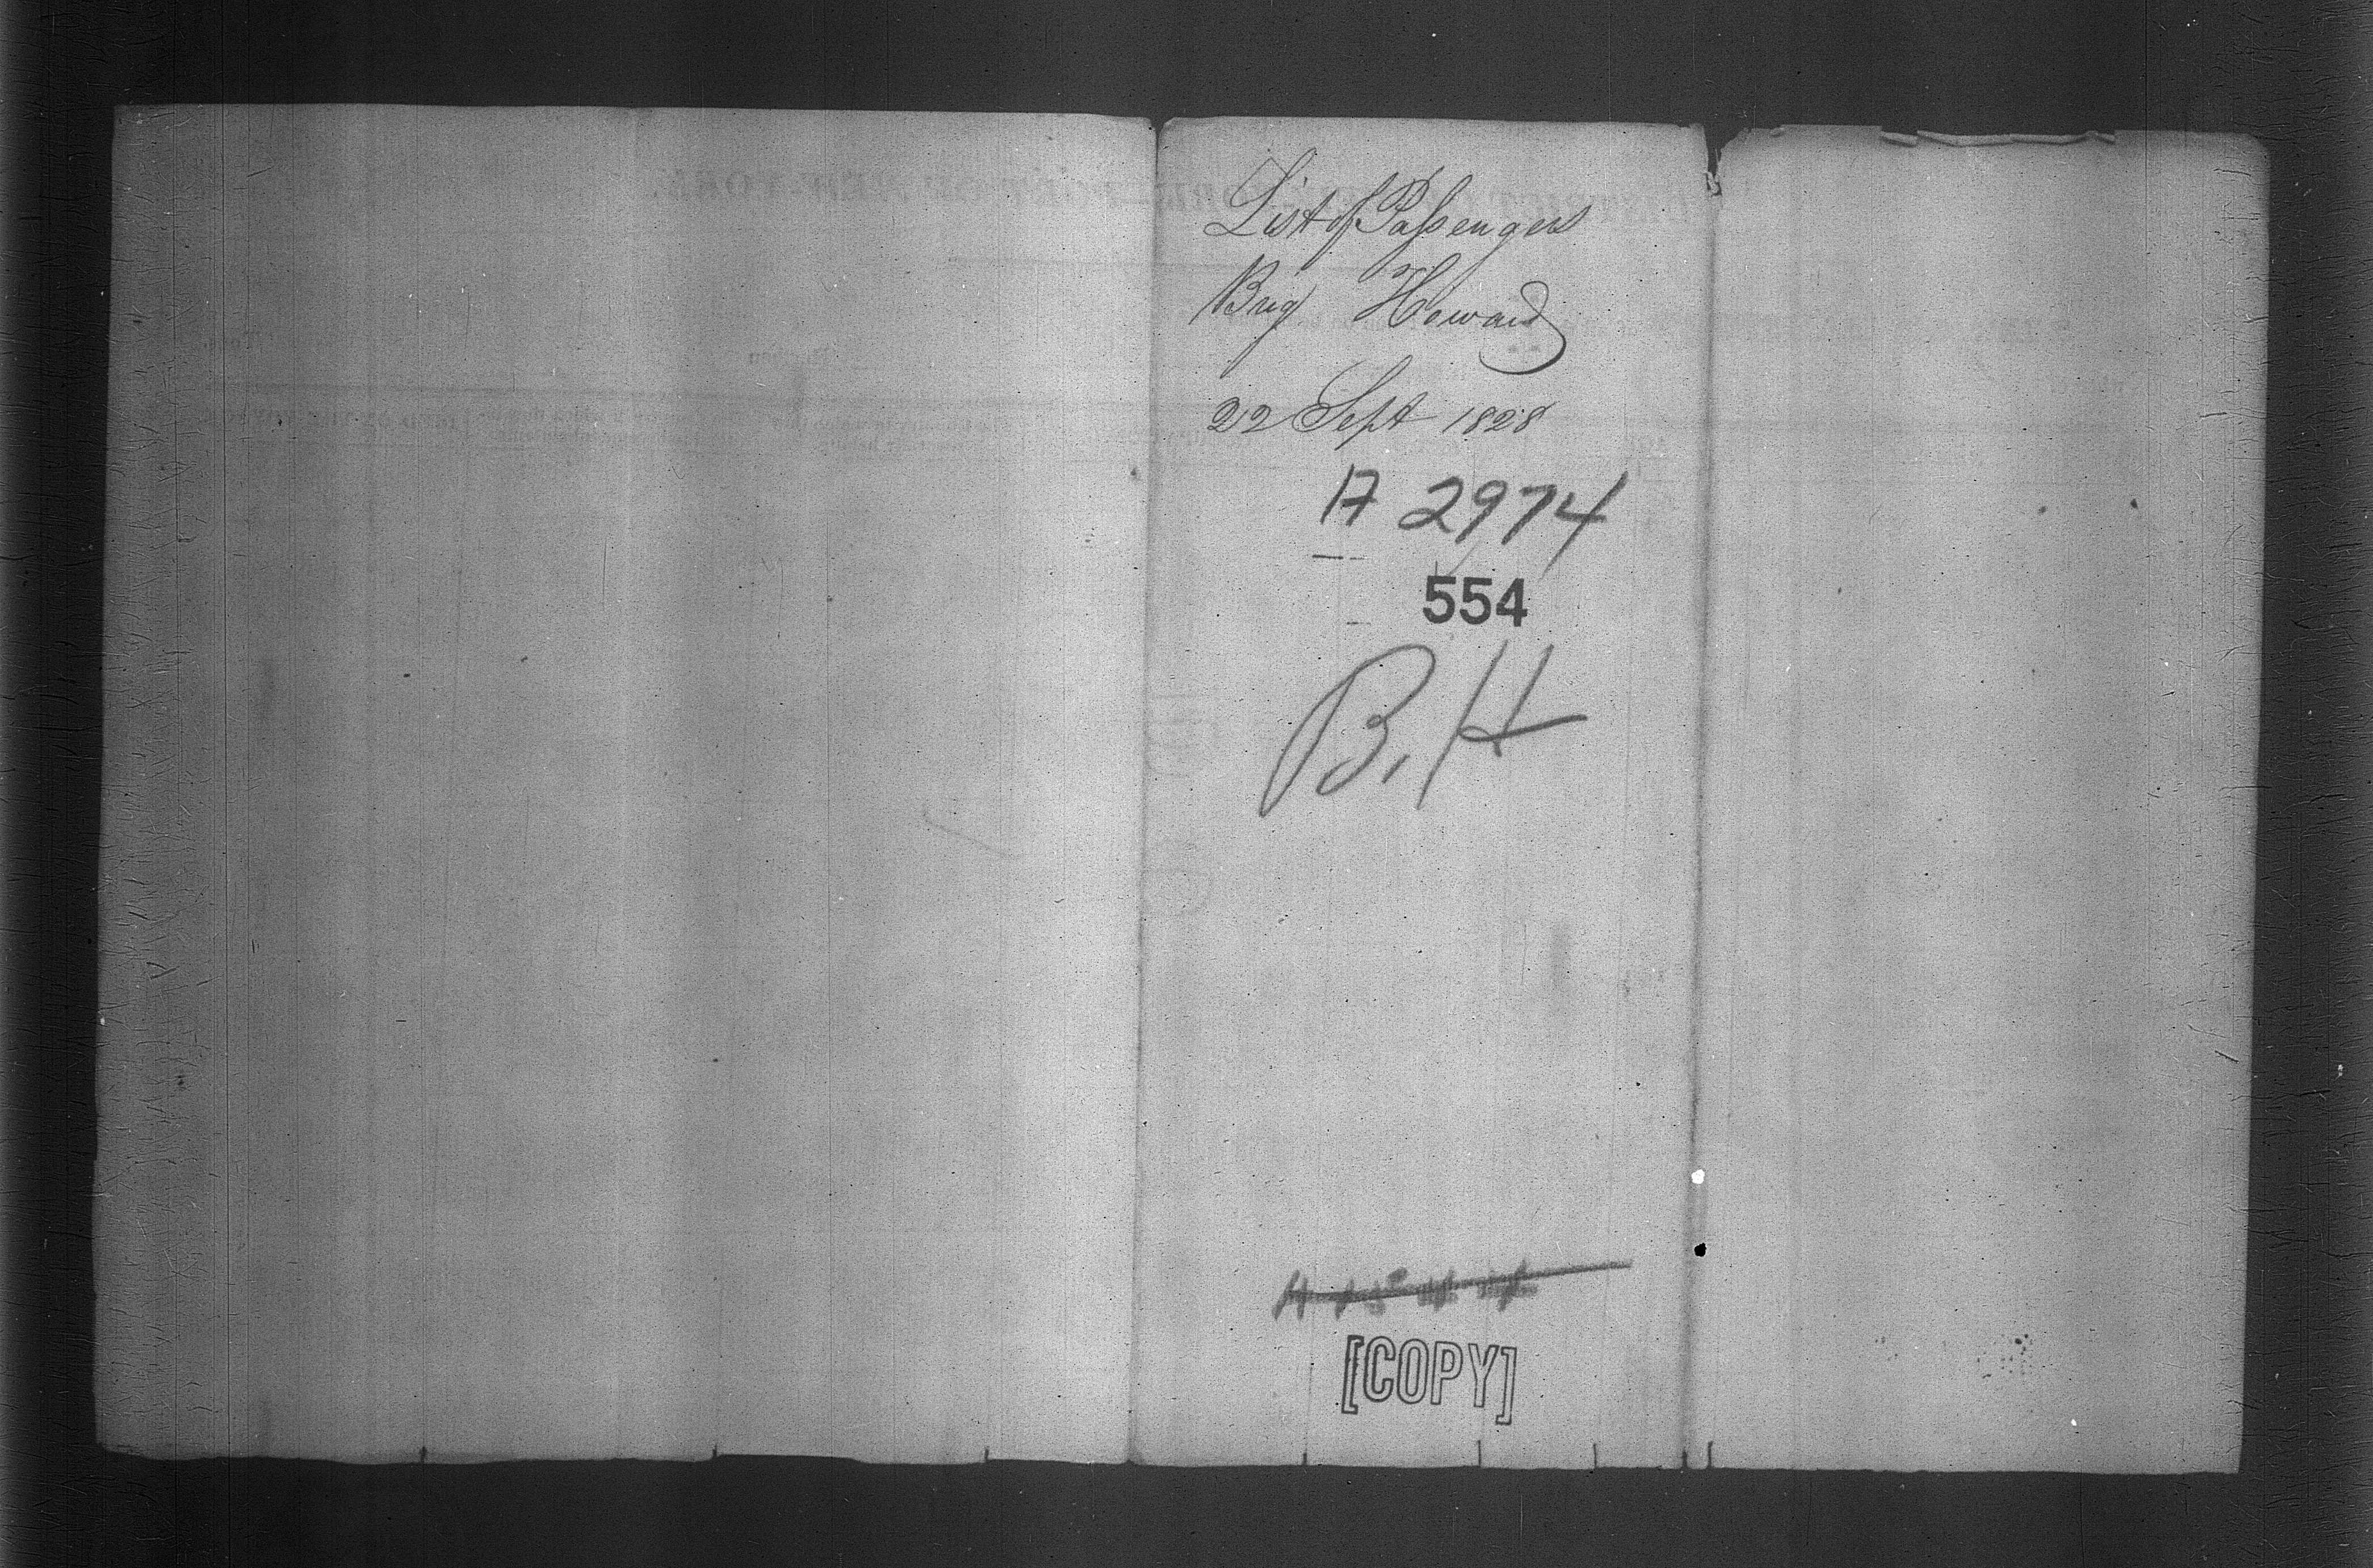 List of Passengers
Brig Howard
22 Sept 1828
17 2974
554
B. H
[COPY]